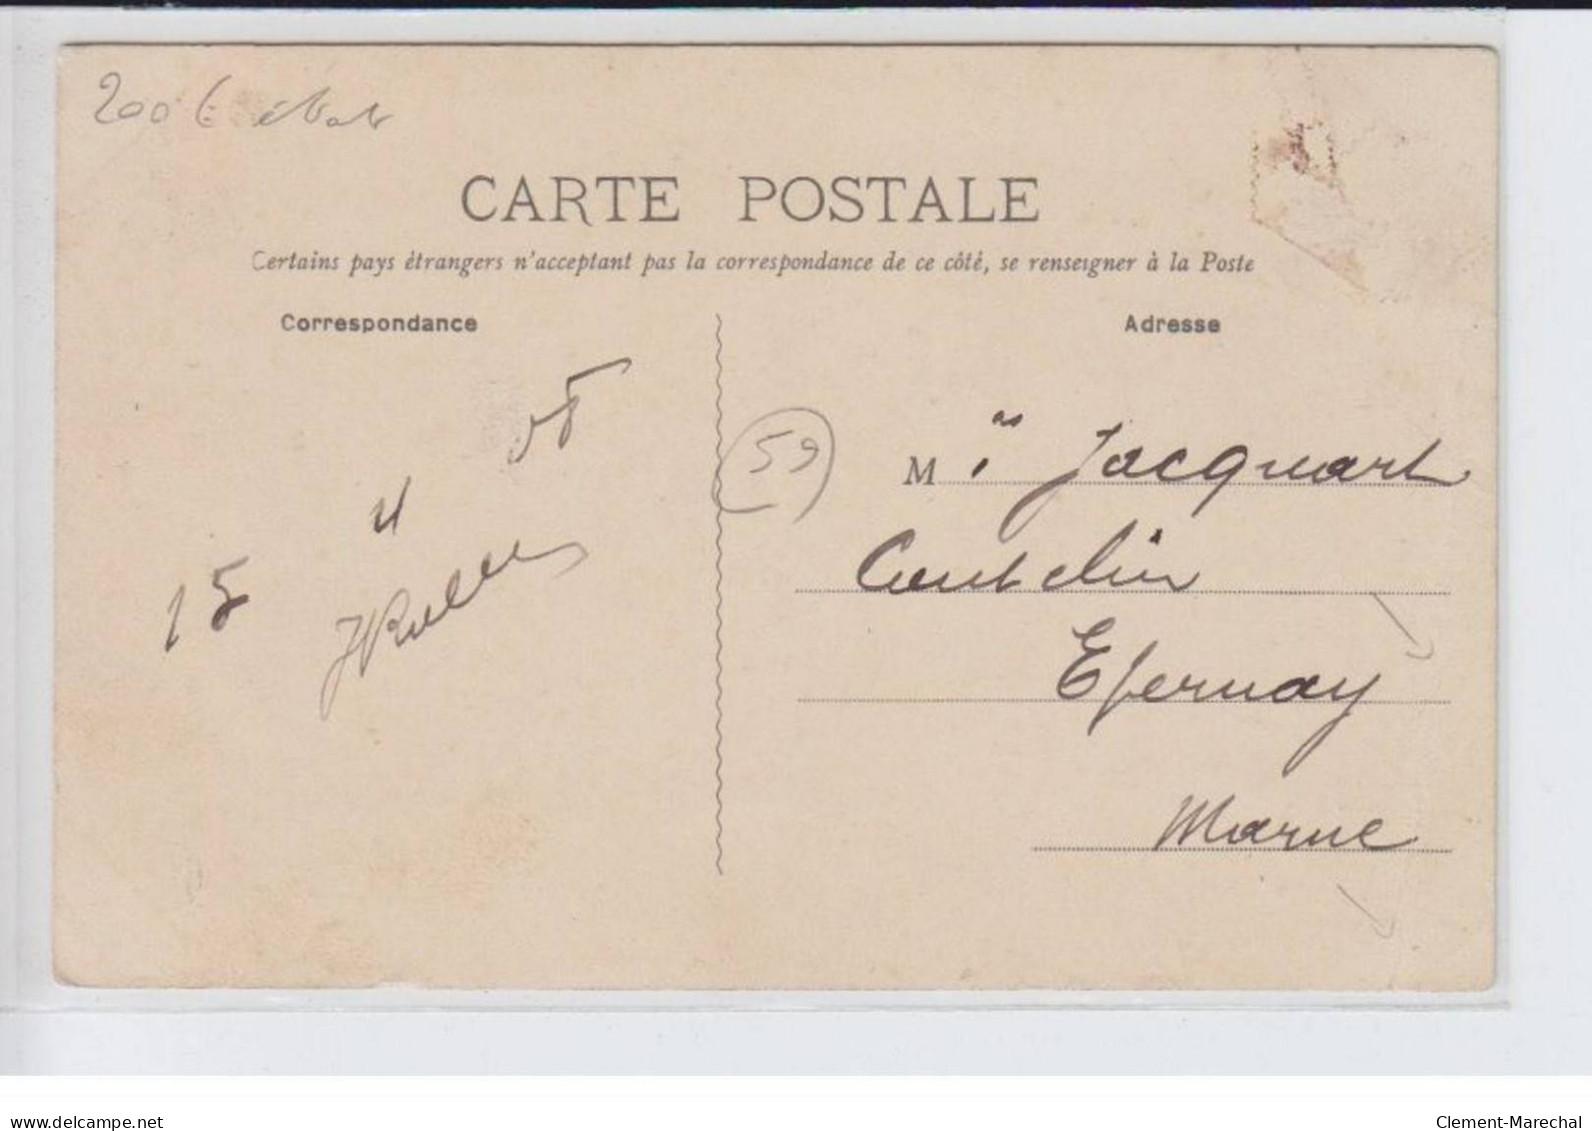 200 € état
CARTE POSTALE
Certains pays étrangers n'acceptant pas la correspondance de ce côté, se renseigner à la Poste
Correspondance
Adresse
15 4
59
M Jacquart
Epernay
Marne
www.delcampe.net
Clement-Marechal